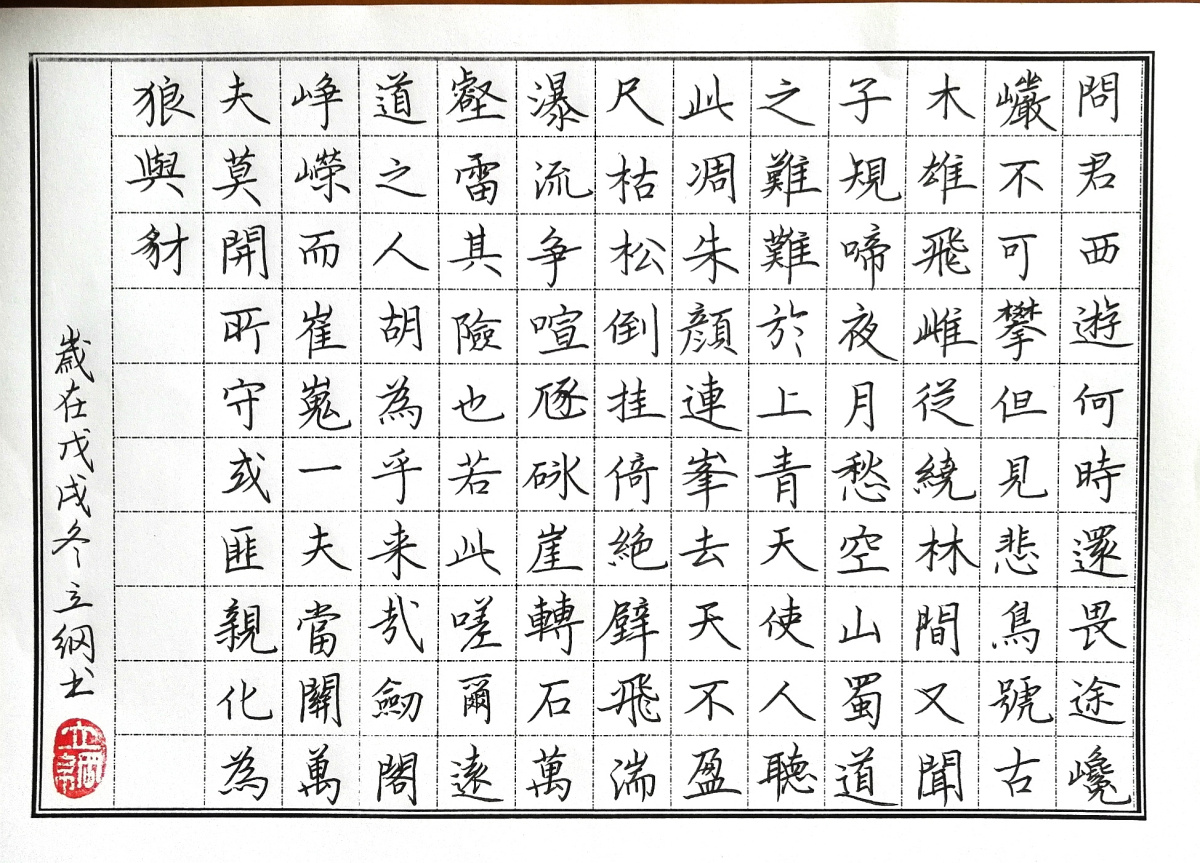 問君西遊何時還畏途巉
巖不可攀但見悲鳥號古
木雄飛雌從繞林間又聞
子規啼夜月愁空山蜀道
之難難於上青天使人聽
此凋朱顏連峯去天不盈
尺枯松倒挂倚絕壁飛湍
瀑流爭喧豗砯崖轉石萬
壑雷其險也若此嗟爾遠
道之人胡為乎来哉劒閣
崢嶸而崔嵬一夫當關萬
夫莫開所守或匪親化為
狼與豺
歲在戊戌冬立綱书
立綱